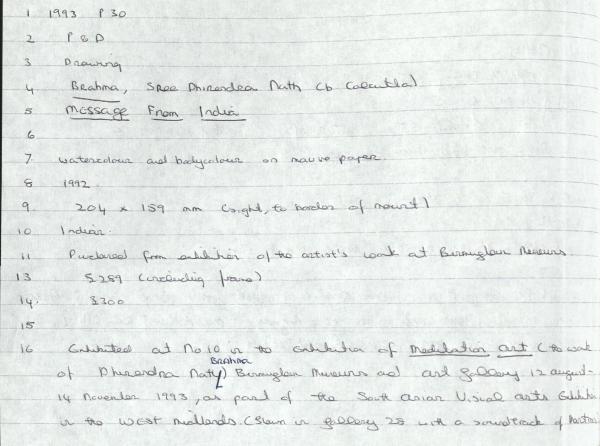 1 1993 P30
2 P & D
3 Drawing
4 Brahma, Sree Dhirendra Nath (b Calcutta)
5 Message From India
6
7 Watercolour and bodycolour on mauve paper
8 1992
9 204 x 159 mm (sight, to border of mount)
10 Indian.
11 Purchased from exhibition of the artist's work at Birmingham Museums
13 £289 (including frame)
14. £300
15
16 Exhibited at No 10 in the exhibition of Meditation Art (the work
of Dhirendra Nath Brahma) Birmingham Museums and art gallery 12 august-
14 November 1993, as part of the South Asian Visual arts Exhibition
in the West Midlands. (Shown in gallery 28 with a soundtrack of